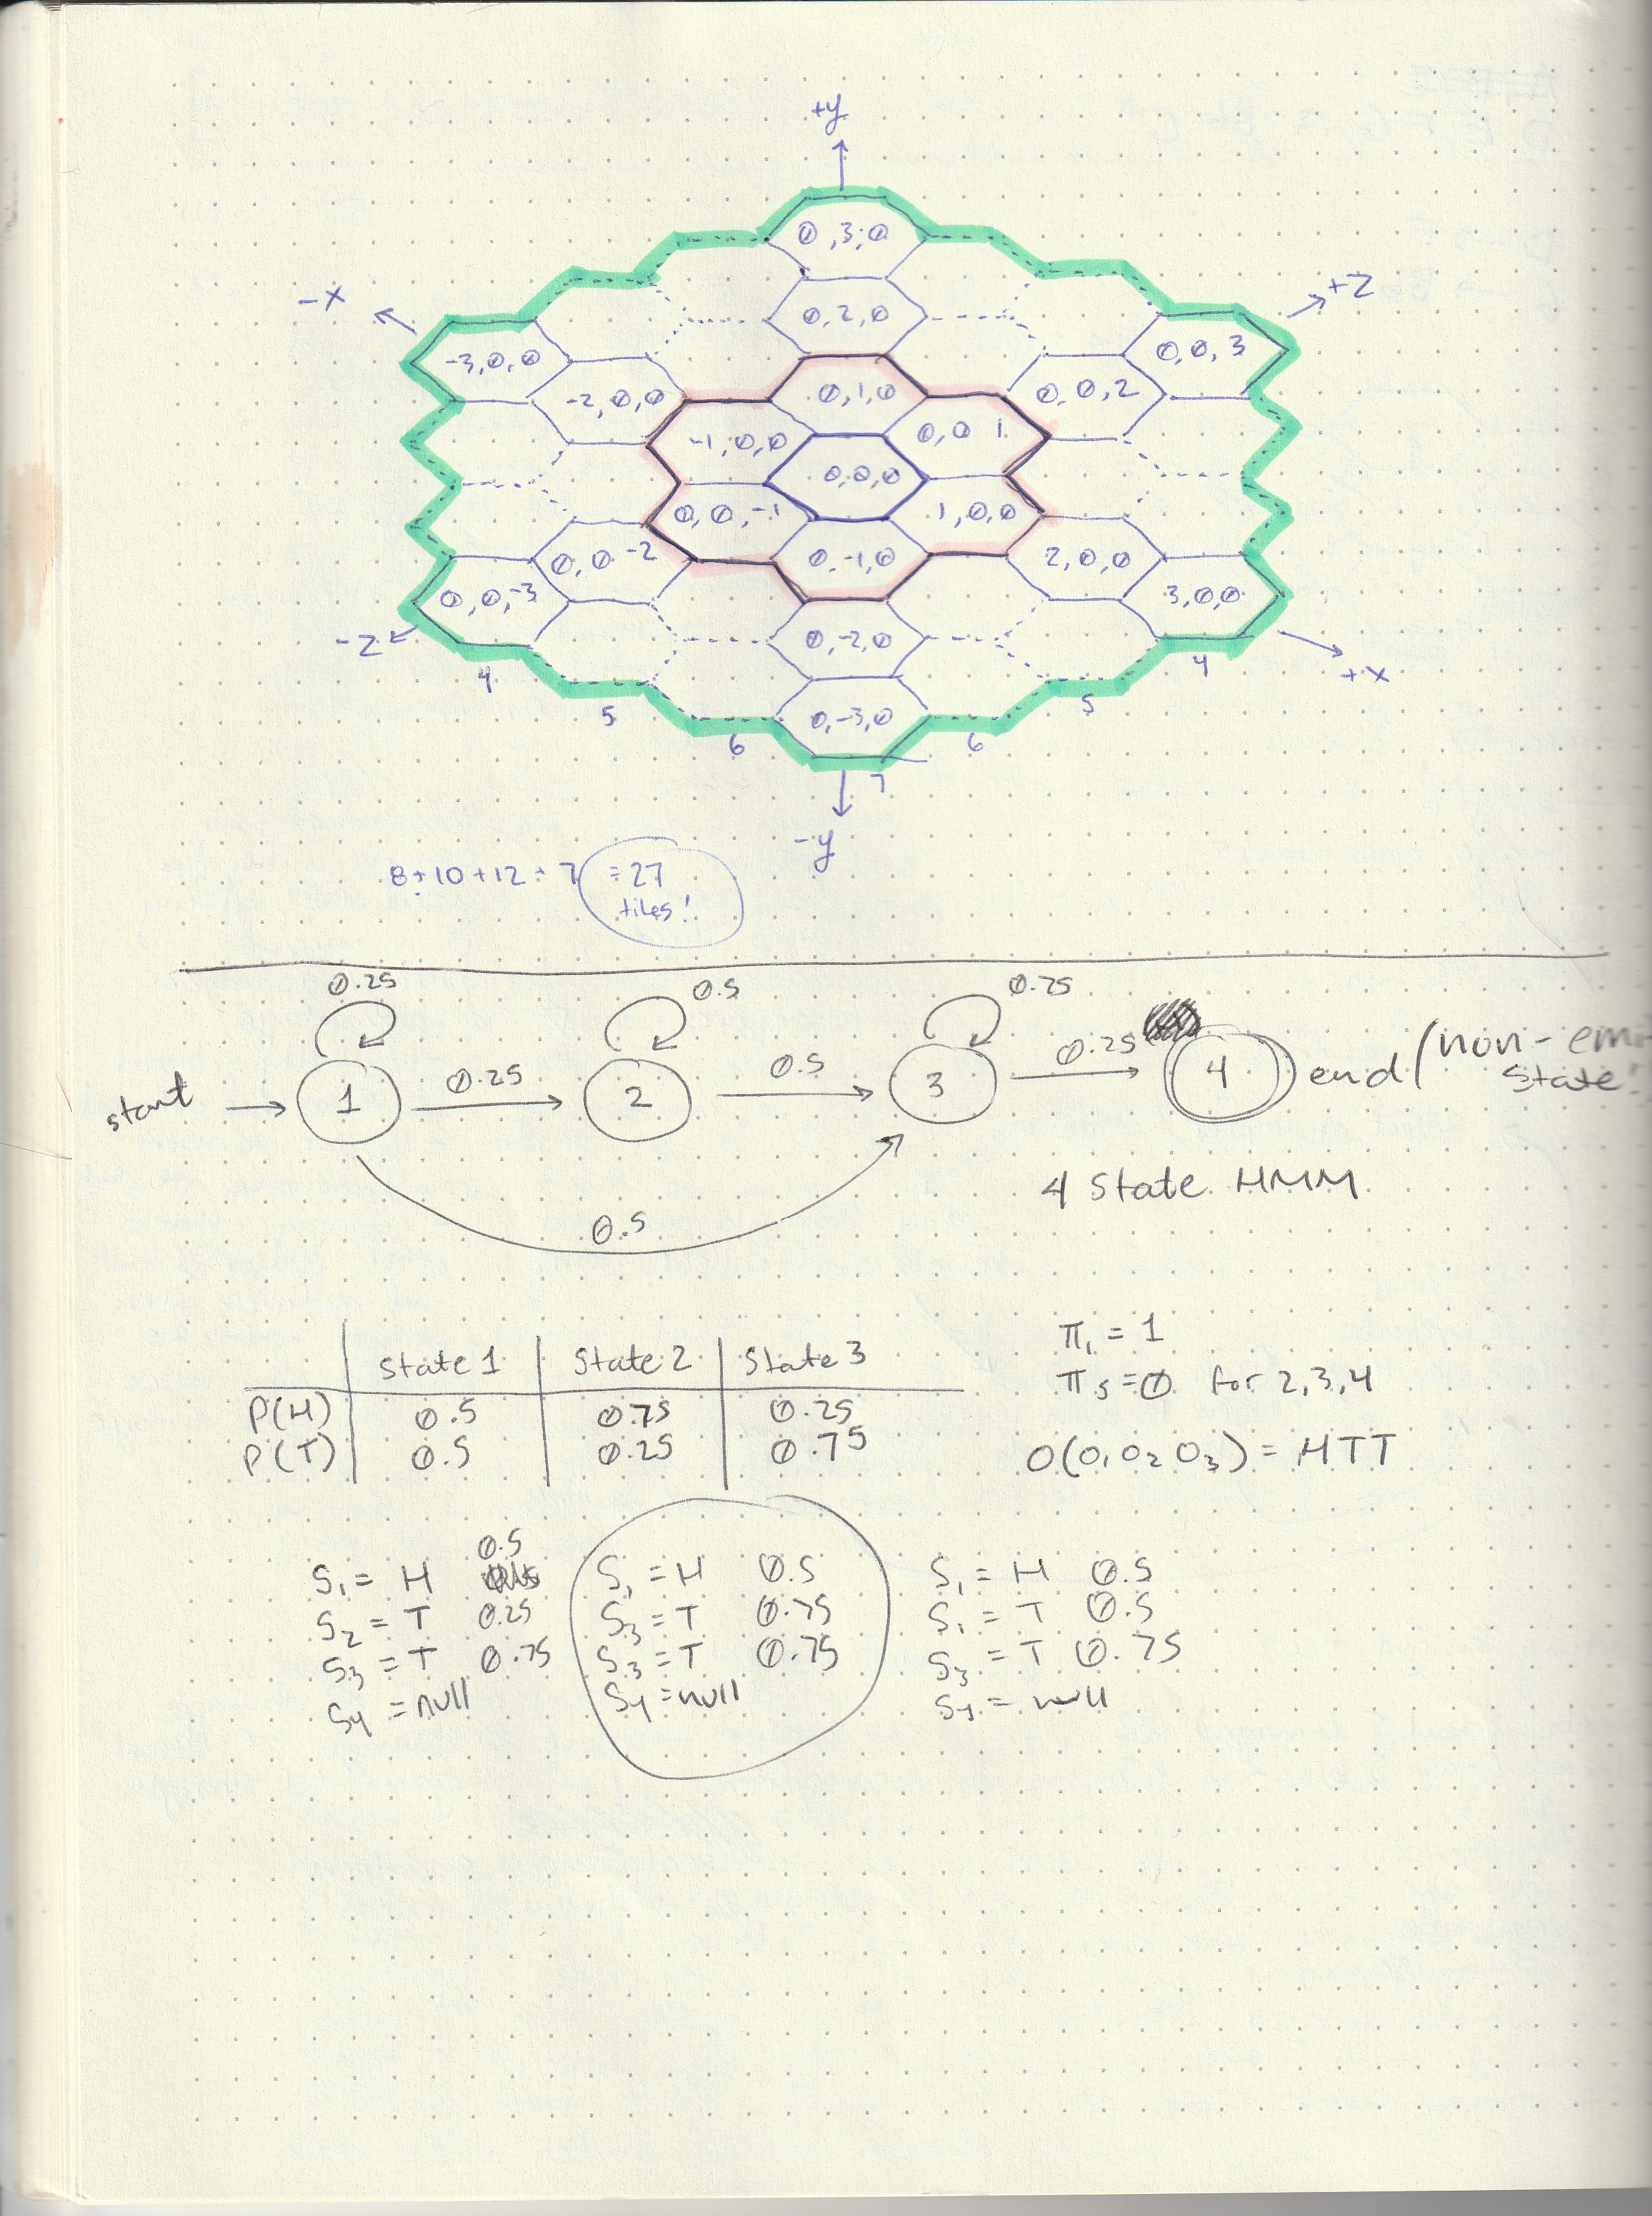 +y
0,3,0
-x
+z
0,2,0
-3,0,0
0,0,3
-2,0,0
0,1,0
0,0,2
-1,0,0
0,0 1
0,0,0
0,0,-1
1,0,0
0,0 -2
0,-1,0
2,0,0
0,0,-3
3,0,0
-z
0,-2,0
+x
4
4
5
0,-3,0
5
6
6
7
-y
8+10+12+7 =27
tiles!
0.25
0.5
0.75
start
1
0.25
2
0.5
3
0.25
4
end (non-em
state
0.5
4 state HMM
state 1 state 2 state 3
P(H) 0.5 0.75 0.25
P(T) 0.5 0.25 0.75
π₁ = 1
π s = 0 for 2,3,4
O(O₁ O₂ O₃) = HTT
0.5
S₁ = H
S₂ = T 0.25
S₃ = T 0.75
S₄ = null
S₁ = H 0.5
S₃ = T 0.75
S₃ = T 0.75
S₄ = null
S₁ = H 0.5
S₁ = T 0.5
S₃ = T 0.75
S₄ = null